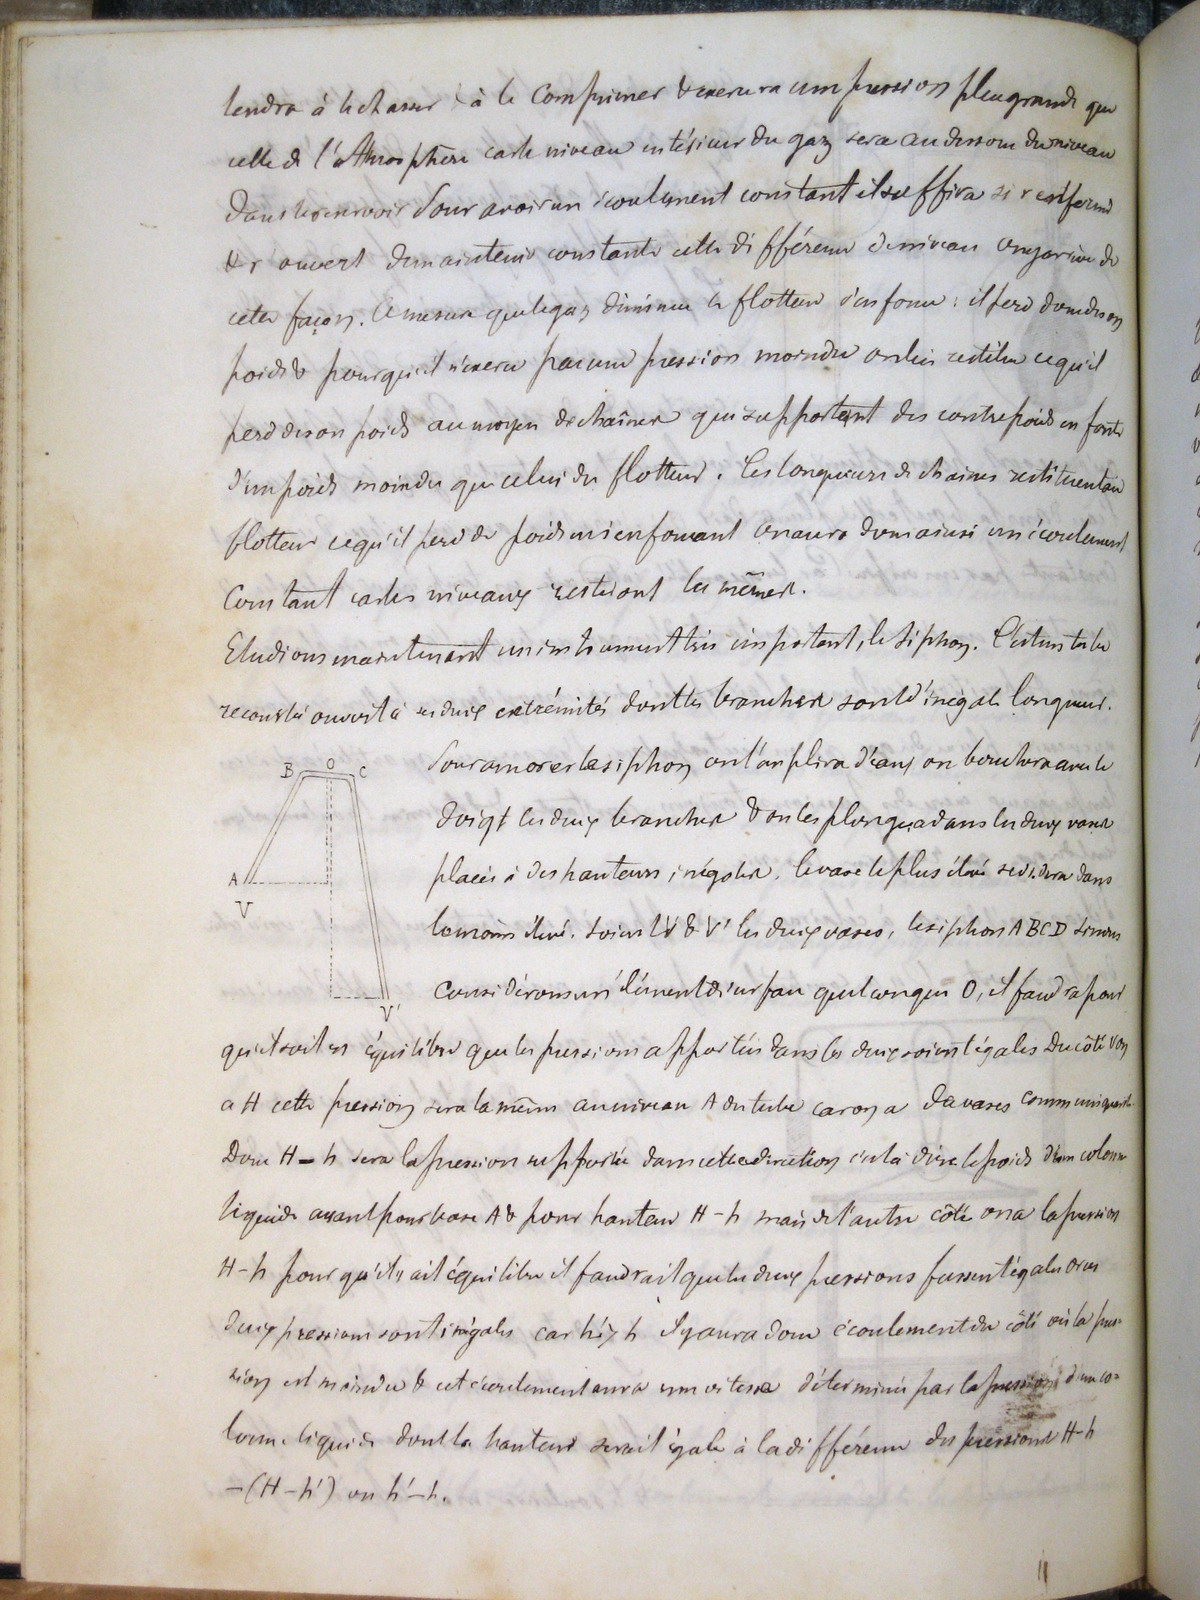 tendra à le chasser & à le comprimer & exercera une pression plus grande que
celle de l'atmosphère car le niveau intérieur du gaz sera au dessous du niveau
dans le réservoir Pour avoir un écoulement constant il suffira si r est fermé
& r ouvert de maintenir constante cette différence de niveau on y arrive de
cette façon. A mesure que le gaz diminue le flotteur s'enfonce : il perd donc de son
poids & pour qu'il n'exerce pas une pression moindre on lui restitue ce qu'il
perd de son poids au moyen de chaînes qui supportent des contrepoids en fonte
d'un poids moindre que celui du flotteur. Les longueurs de chaines restituent au
flotteur ce qu'il perd de poids en s'enfonçant on aura donc ainsi un écoulement
constant car les niveaux resteront les mêmes.
Etudions maintenant un instrument très important, le siphon. C'est un tube
recourbé ouvert à ses deux extrémités dont les branches sont d'inégale longueur.
B O C
Pour amorcer le siphon on l'emplira d'eau, on bouchera avec le
doigt les deux branches & on les plongea dans les deux vases
placés à des hauteurs inégales. le vase le plus élevé se videra dans
A
le moins élevé. Soient V & V' les deux vases, le siphon ABCD Si nous
V
considérons un élément d'eau quelconque O, il faudra pour
V'
qu'il soit en équilibre que les pressions apportées dans les deux soient égales Du côté V on
a H cette pression sera la même au niveau A du tube car on a des vases communiquants
Donc H-h sera la pression supportée dans cette direction c'est à dire le poids d'une colonne
liquide ayant pour base A & pour hauteur H-h mais de l'autre côté on a la pression
H-h pour qu'il y ait équilibre il faudrait que les deux pressions fussent égales or ces
deux pressions sont inégales car h'>h Il y aura donc écoulement du côté où la pres-
sion est moindre & cet écoulement aura une vitesse déterminée par la pression d'une co-
lonne liquide dont la hauteur serait égale à la différence des pressions H-h
-(H-h') ou h'-h.